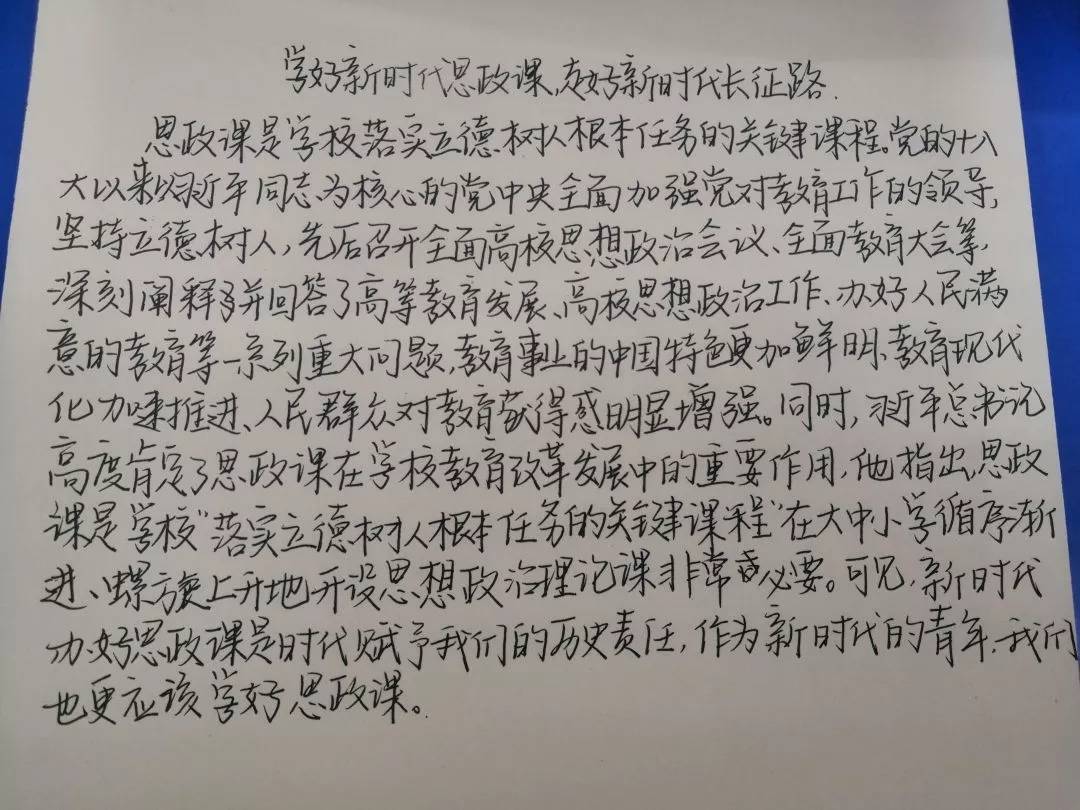 学好新时代思政课,走好新时代长征路.
思政课是学校落实立德树人根本任务的关键课程。党的十八
大以来以习近平同志为核心的党中央全面加强党对教育工作的领导,
坚持立德树人,先后召开全面高校思想政治会议、全面教育大会等,
深刻阐释并回答了高等教育发展、高校思想政治工作、办好人民满
意的教育等一系列重大问题,教育事业的中国特色更加鲜明、教育现代
化加速推进、人民群众对教育获得感明显增强。同时,习近平总书记
高度肯定了思政课在学校教育改革发展中的重要作用,他指出,思政
课是学校"落实立德树人根本任务的关键课程"在大中小学循序渐
进、螺旋上升地开设思想政治理论课非常必要。可见,新时代
办好思政课是时代赋予我们的历史责任,作为新时代的青年、我们
也更应该学好思政课。